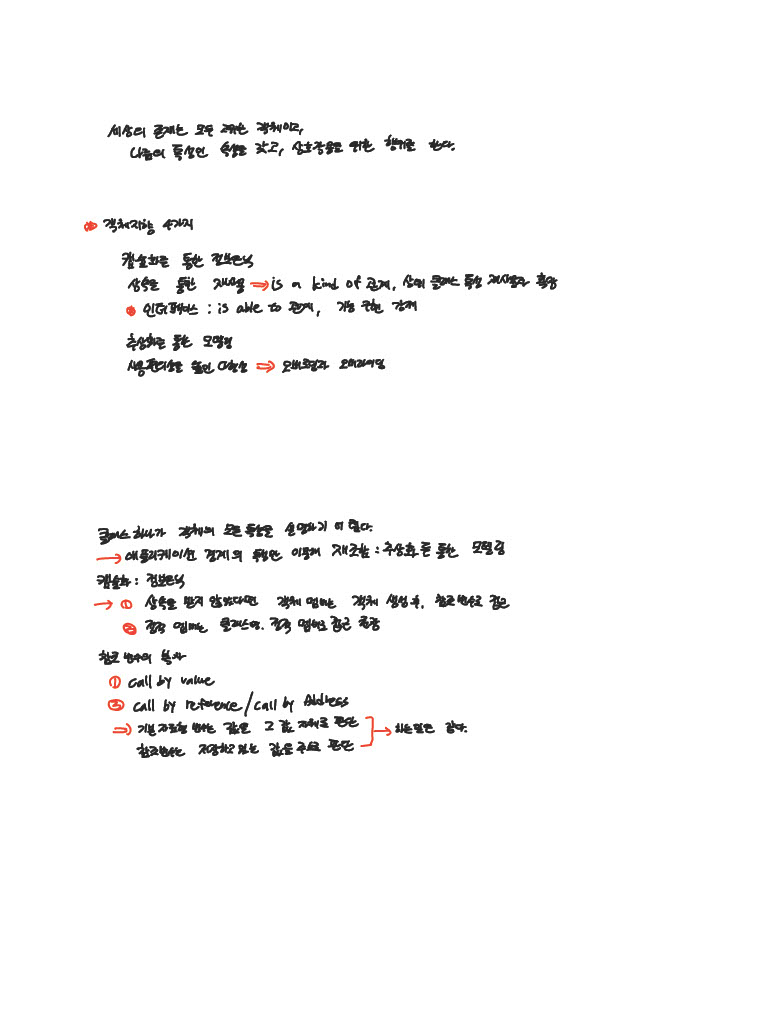 세상의 존재는 모든 것은 객체이고,
나름의 특성인 속성을 갖고, 상호작용을 위한 행위를 한다.
객체지향 4가지
캡슐화를 통한 정보은닉
상속을 통한 재사용 ⇒ is a kind of 관계, 상위 클래스 특성 재사용과 확장
인터페이스 : is able to 관계, 기능 구현 강제
추상화를 통한 모델링
사용편의성을 높인 다형성 ⇒ 오버로딩과 오버라이딩
클래스 하나가 객체의 모든 특성을 설명하기 어렵다.
→ 애플리케이션 경계의 특성만 이용해 재조합 : 추상화를 통한 모델링
캡슐화 : 정보은닉
→ ① 상속을 받지 않았다면 객체 멤버는 객체 생성 후, 참조변수로 접근
② 정적 멤버는 클래스명.정적 멤버로 접근 권장
참조 변수의 복사
① call by value
② call by reference/call by Address
⇒ 기본자료형 변수는 값을 그 값 자체로 판단
참조변수는 저장하고 있는 값을 주소로 판단 → 하는일은 같다.